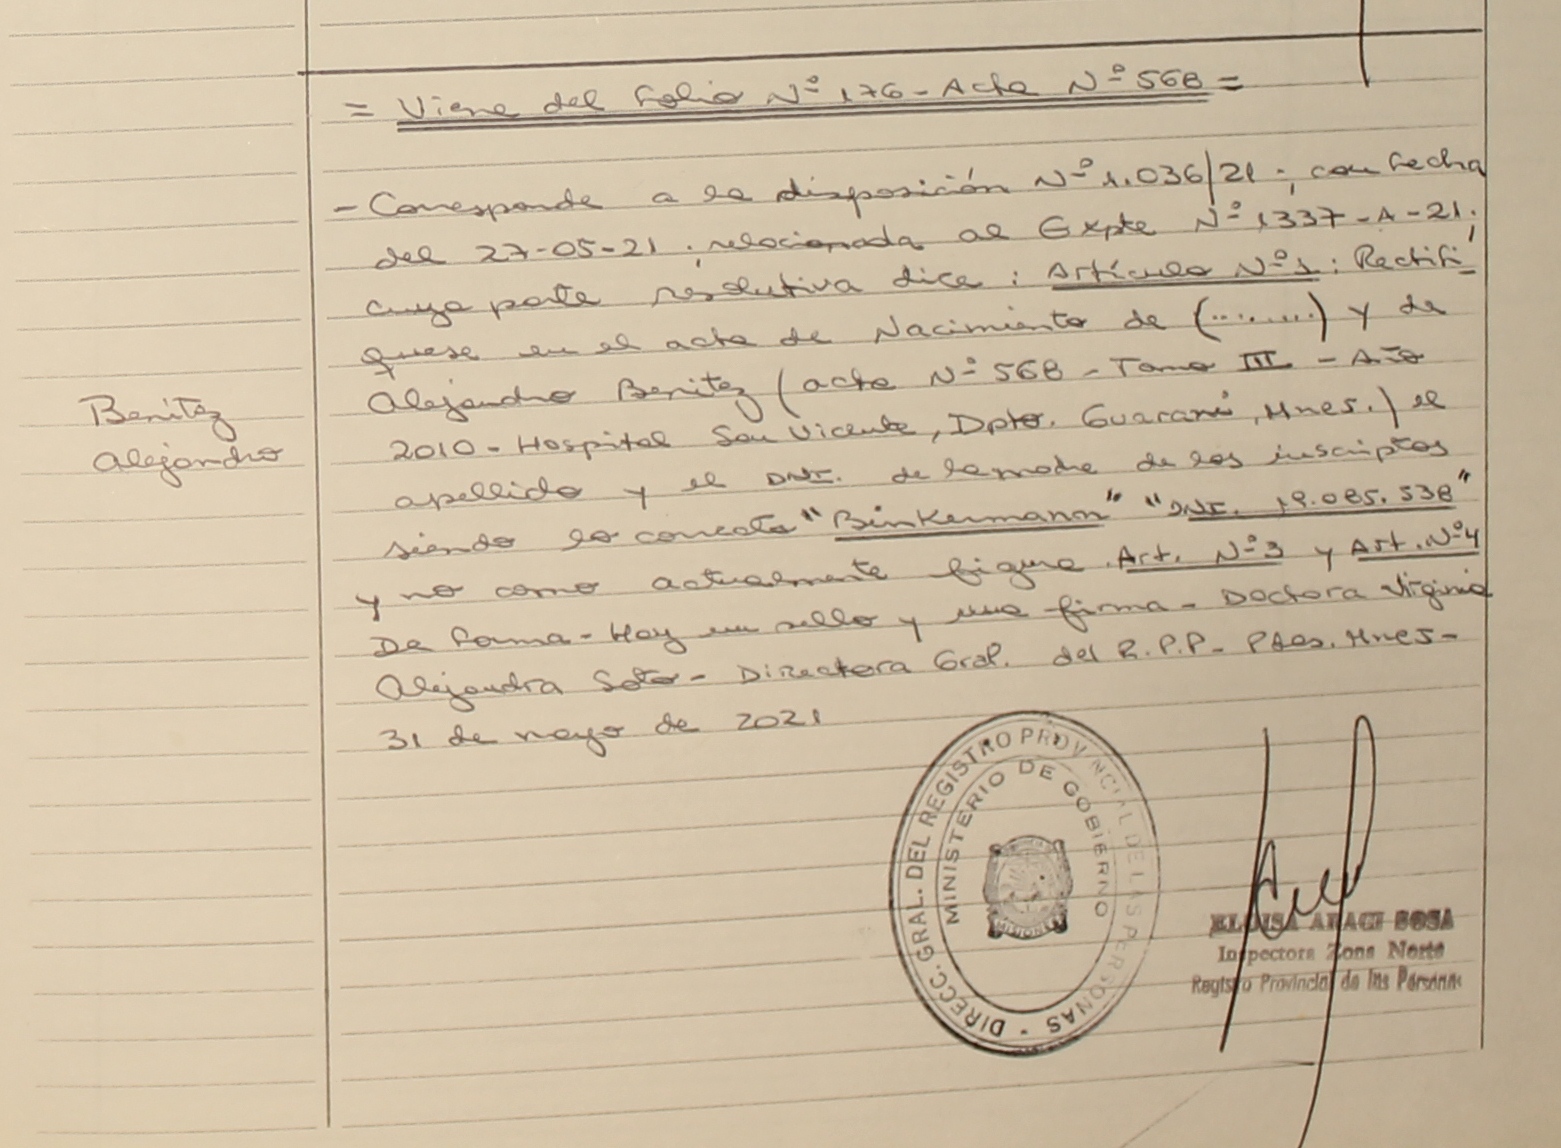 = Viene del Folio Nº 176 - Acta Nº 568 =
- Corresponde a la disposición Nº 1.036/21 ; con fecha
del 27-05-21 ; relacionada al Expte Nº 1337-A-21 ;
cuya parte resolutiva dice : Artículo Nº1 : Rectifi-
quese en el acta de Nacimiento de (........) y de
Benitez
Alejandro
Alejandro Benitez (acta Nº 568 - Tomo III - Año
2010 - Hospital San Vicente, Dpto. Guaraní, Mnes.) el
apellido y el DNI. de la madre de los inscriptos
siendo lo correcto "Binkermann" "DNI. 19.085.538"
y no como actualmente figura. Art. Nº3 y Art. Nº4
De forma - Hay un sello y una firma - Doctora Virginia
Alejandra Soto - Directora Gral. del R.P.P - Pdas. Mnes -
31 de mayo de 2021
DIRECC. GRAL. DEL REGISTRO PROVINCIAL DE LAS PERSONAS -
MINISTERIO DE GOBIERNO
MISIONES
ELOISA ARACI SOSA
Inspectora Zona Norte
Registro Provincial de las Personas